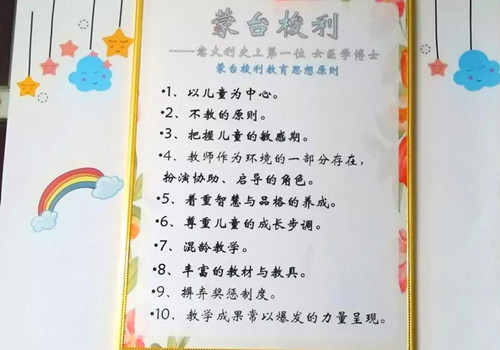 蒙台梭利
——意大利史上第一位 女医学博士
蒙台梭利教育思想原则
•1、以儿童为中心。
•2、不教的原则。
•3、把握儿童的敏感期。
•4、教师作为环境的一部分存在，
扮演协助、启导的角色。
•5、着重智慧与品格的养成。
•6、尊重儿童的成长步调。
•7、混龄教学。
•8、丰富的教材与教具。
•9、摒弃奖惩制度。
•10、教学成果常以爆发的力量呈现。